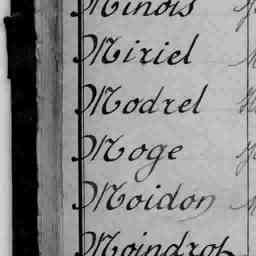 Minois
Miriel
Modrel
Moge
Moidon
Moindrot